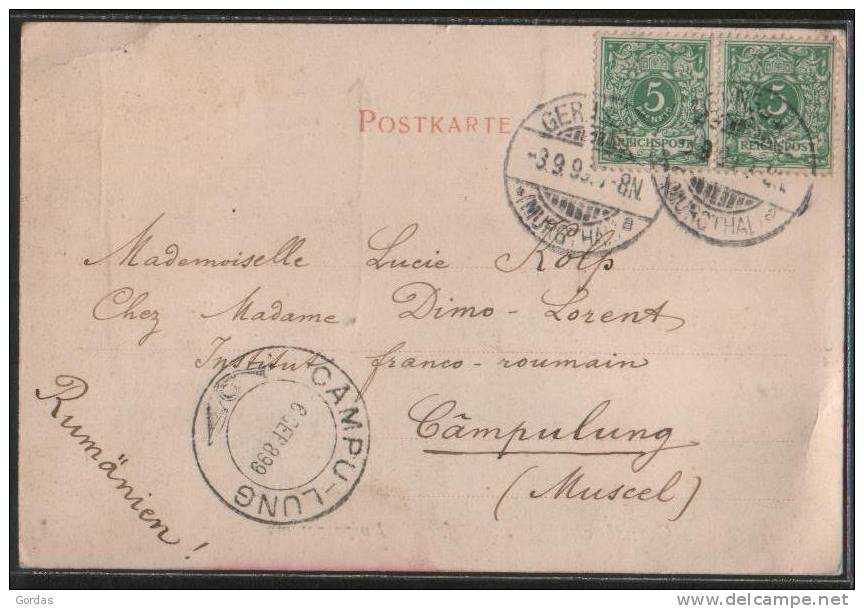 POSTKARTE
5
5
REICHSPOST
REICHSPOST
-3.9.99.7-8N.
(MURGTHAL)
Mademoiselle Lucie Kolp
Chez Madame Dimo-Lorent
Institut franco-roumain
Câmpulung
(Muscel)
Rumänien!
CAMPU-LUNG
6 SEP 899
Gordas
www.delcampe.net